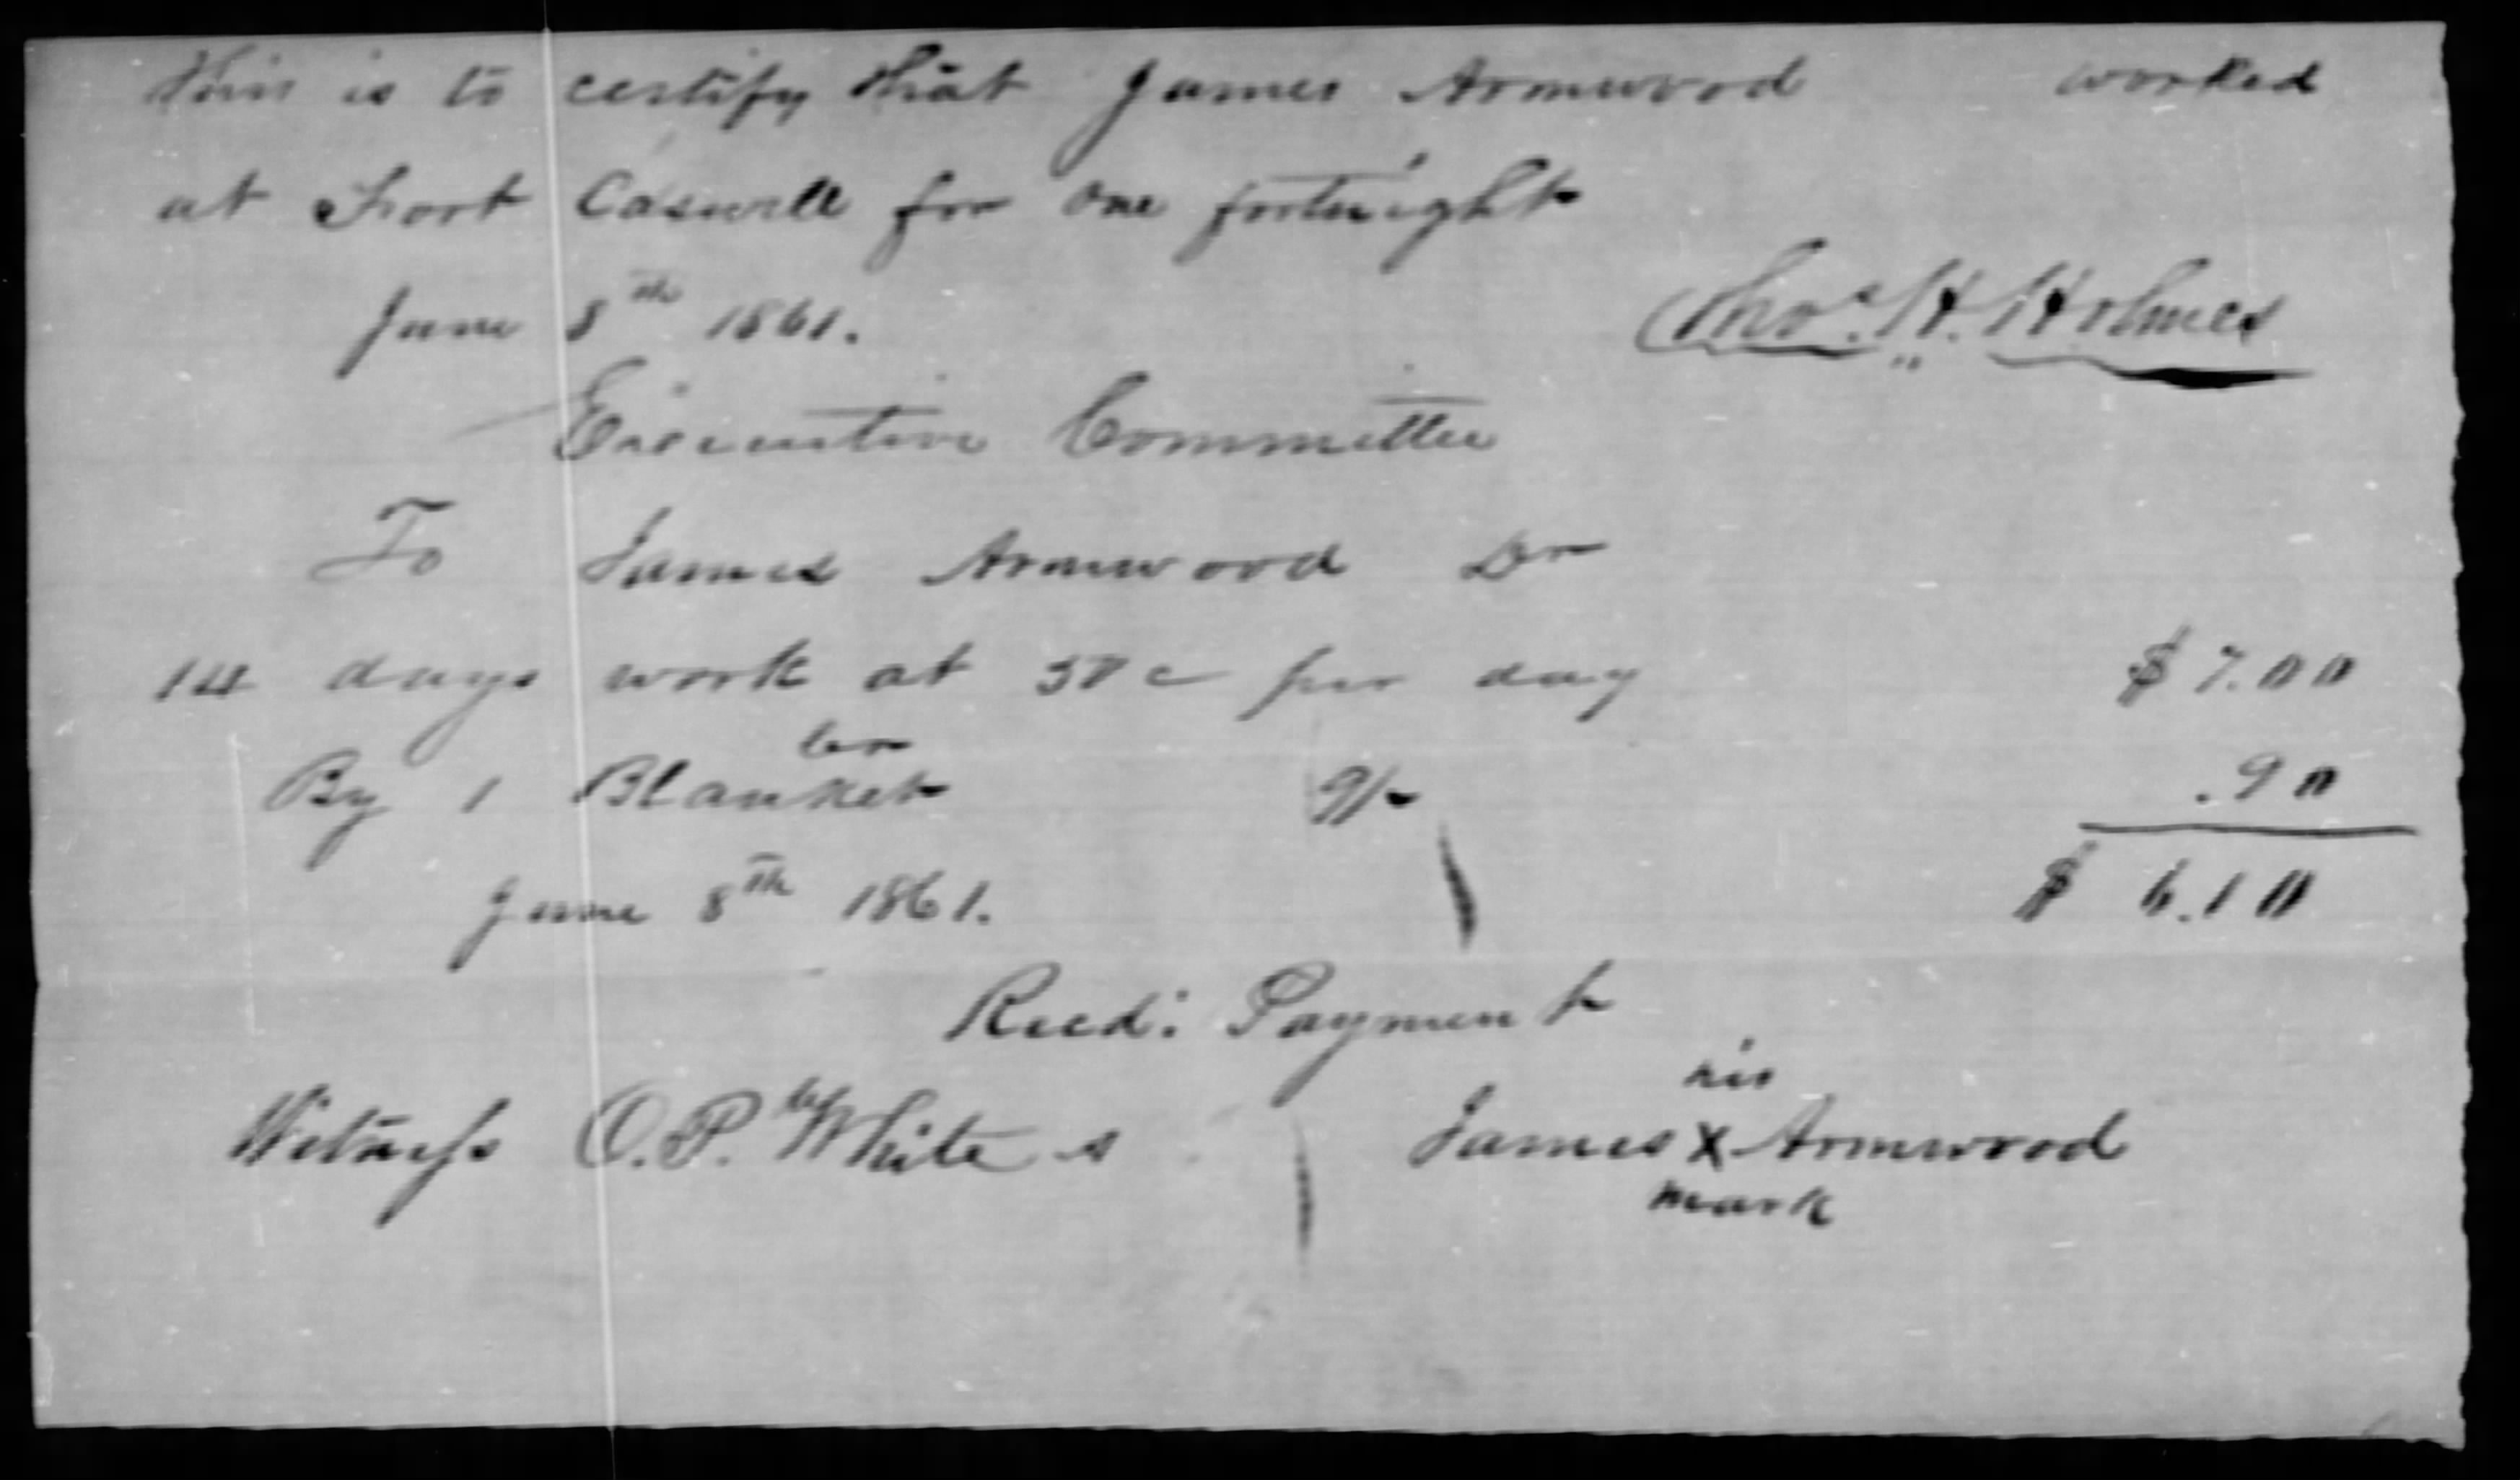 This is to certify that James Armwood worked
at Fort Caswell for one fortnight
June 8th 1861. Thos. H. Holmes
Executive Committee
To James Armwood Dr
14 days work at 50c per day $7.00
Cr
By 1 Blanket 9/- .90
June 8th 1861. $ 6.10
Recd: Payment
his
Witness O.P. White James X Armwood
mark